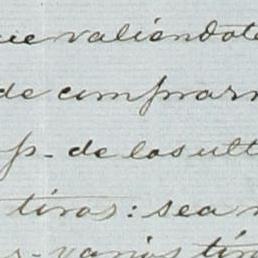 que valiéndote
de comprarm
p. de las ult
tiros: sea n
s. varios tir